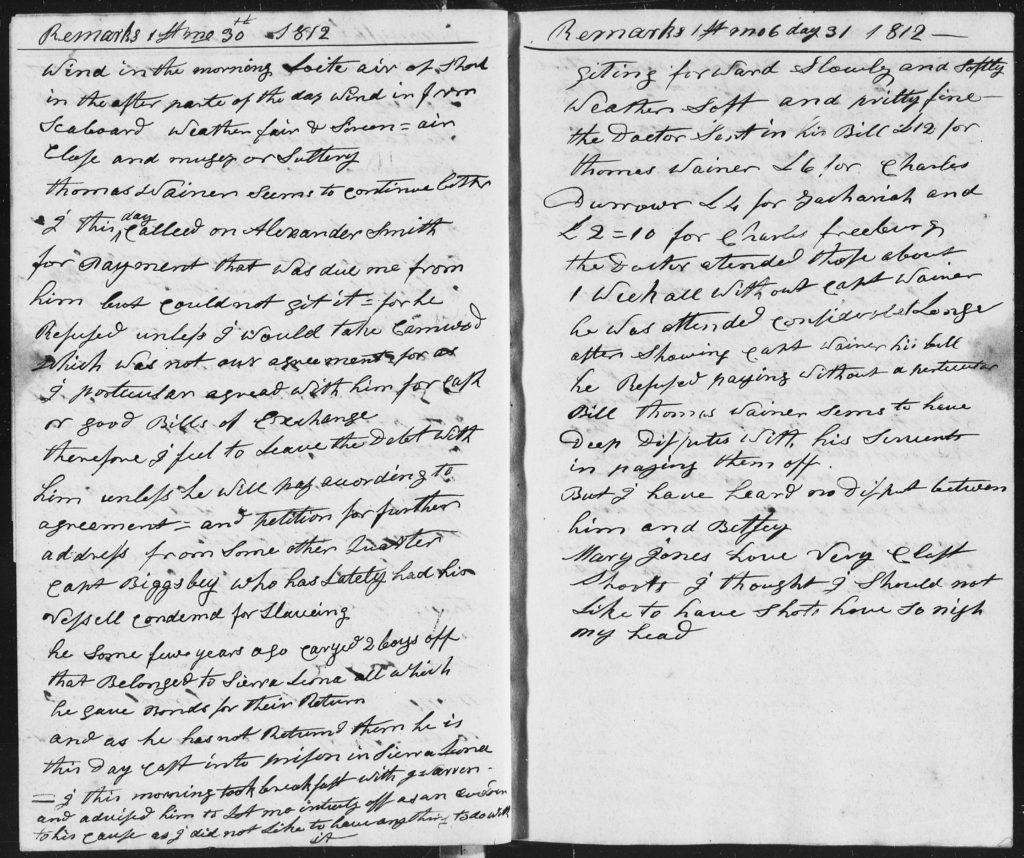 Remarks 1st mo 30th 1812
Wind in the morning Loite air of Shore
in the after parte of the day Wind in from
Seaboard Weather fair & Sereen = air
Close and mugey or Suttery
thomas Wainer Seems to continue better
I this day Called on Alexander Smith
for Payment that was due me from
him but could not git it = for he
Refused unless I would take Camwood
Which was not our agreement = for as
I porticular agread with him for Cash
or good Bills of Exchange
therefore I feel to Leave the Debt with
him unless he Will pay according to
agreement = and petition for further
address from Some other Quarter
Capt Biggsbey who has Lately had his
Vessell Condemd for Slaveing
he Some few years ago Caryed 2 boys off
that Belonged to Sierra Leona all which
he gave Bonds for their Return
and as he has not Returnd them he is
this Day Cast into prison in Sierra Leona
= I this morning took breakfast with
and advised him to Let me intirely off as an
to his Cause as I did not Like to have anything to do With
it
Remarks 1st mo 6 day 31 1812
giting forward Slowly and Softly
Weather Soft and pritty fine
the Doctor Sent in his Bill £12 for
thomas Wainer £6 for Charles
£4 for Zachariah and
£2=10 for Charles freeburg
the Doctor atended those about
1 Week all without Capt Wainer
he was attended Longer
after Showing Capt Wainer his bill
he Refused paying Without a perticular
Bill thomas Wainer Sems to have
Deep Disputes With his Servents
in paying them off.
But I have heard no disput between
him and Betsey
Mary Jones have Very Close
Shorts I thought I Should not
Like to have Shots have So nigh
my head